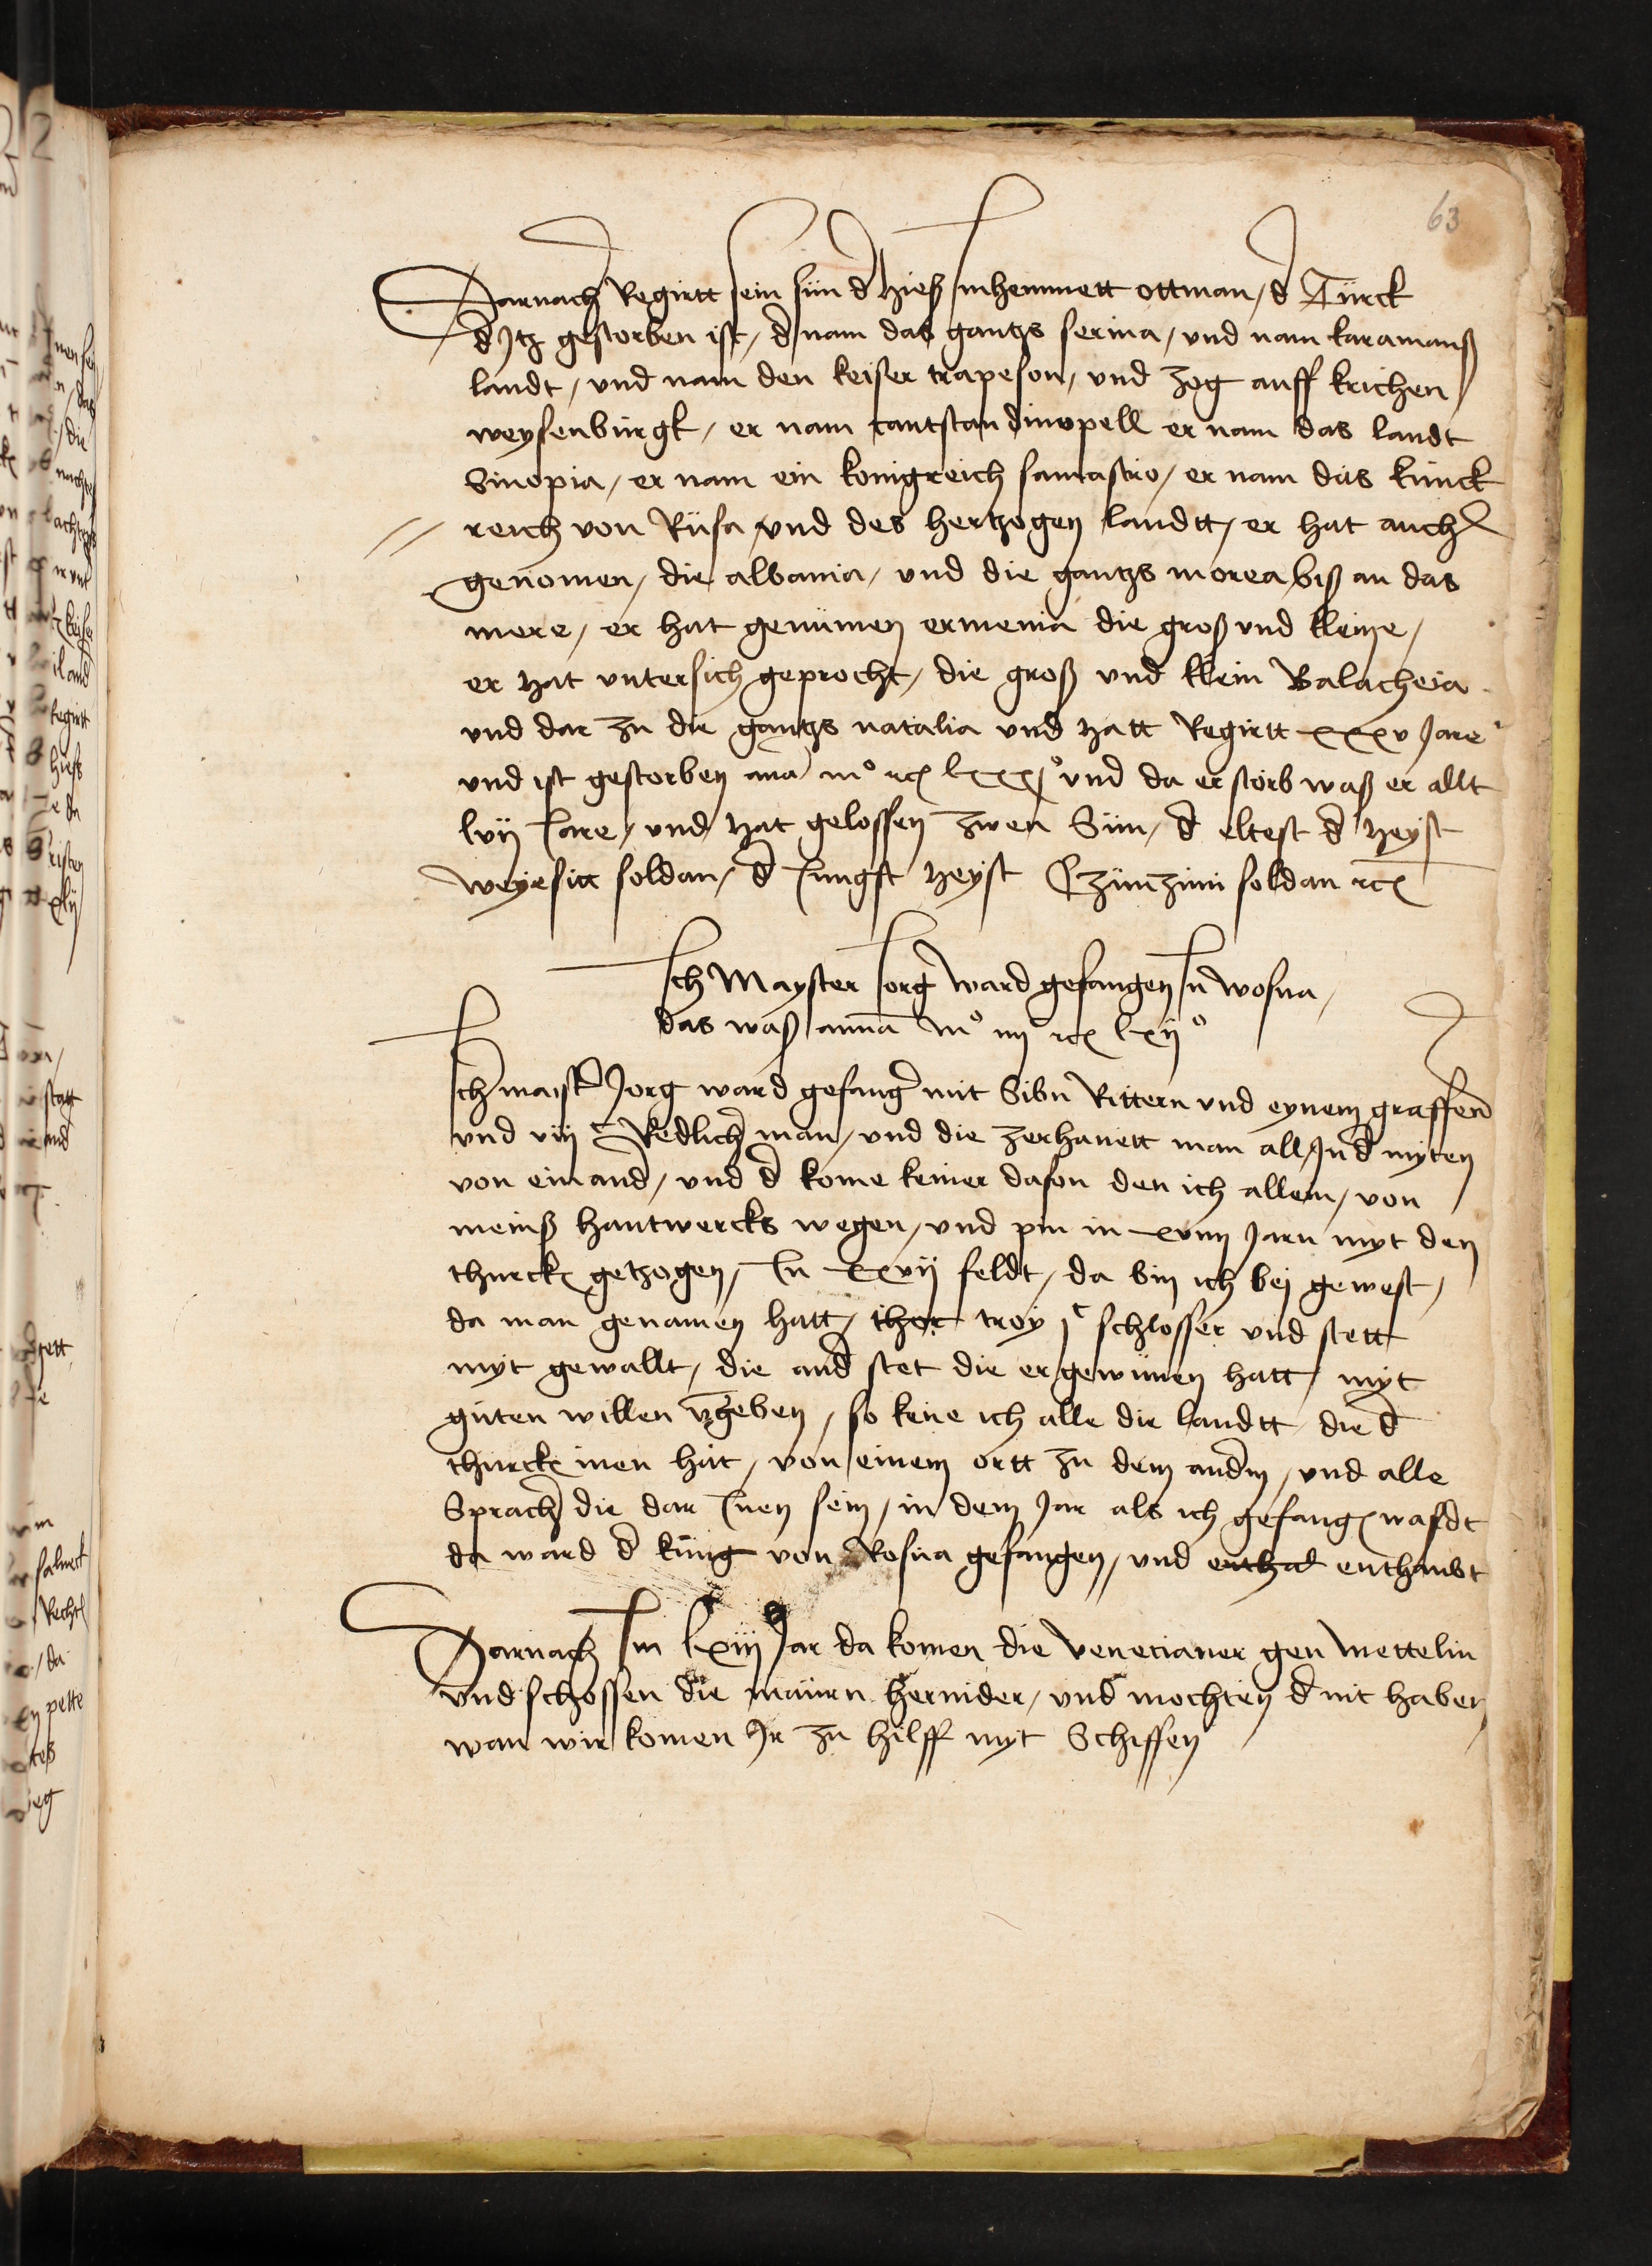 63
Darnach Regirtt sein sün d hieß mhemmett ottman / d Türck
d Jtz gestorben ist / d nam das gantzs serina / vnd nam karamanß
landt / vnd nam den keiser trapeson / vnd zog auff krichen
weysenbürgk / er nam cantstandinopell er nam das landt
Sinopia / er nam ein konigreich samastro / er nam düs künck
reich von Rüsa vnd des hertzogen landtt / er hat auch
genomen / die albania / vnd die gantzs morea biß an das
mere / er hat genümen ermenia die groß vnd kleine /
er hat vntersich geprocht / die groß vnd klein Balacheia
vnd dar zu die gantzs natalia vnd hatt Regirtt xxxv Jare
vnd ist gestorben ana mº cccc lxxxjº vnd da er storb waß er allt
lvij Jare / vnd hat gelossen zwen Sün / d eltest d heyst
weyesitt soldan / d Jungst heyst Czünzüni soldan ꝛcꝭ
Jch Mayster Jorg ward gefangen Jn wosna /
das waß anna mº iiij cꝭ lxijº
Jch maist Jorg ward gefang mit Sibn Rittern vnd eynem graffen
vnd viij c Redlich man / vnd die zerhauett man all Jnd myten
von einand / vnd d kome keiner dafon den ich allein / von
meinß hantwercks wegen / vnd pin in xviiij Jarn myt den
thurckꝭ getzogen / Jn xxvij feldt / da bin ich bej gewest /
da man genamen hatt / thor troy jc schlosser vnd stett
myt gewallt / die and stet die er gewünen hatt / myt
güten willen vgeben / so kene ich alle die landtt die d
thurckꝭ inen hat / von einem ortt zu dem andm / vnd alle
Sprach die dar Jnen sein / in dem Jar als ich gefangꝭ wardt
da ward d küng von Rosna gefangen / vnd enthad enthaubt
Darnach Jm lxiij Jar da komen die venecianer gen mettelin
vnd schossen die maürn hernider / vnd mochten d nit haben
wan wir komen Jr zu hilff myt Schiffen